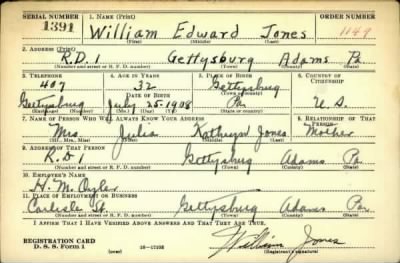 SERIAL NUMBER 1. NAME (Print) ORDER NUMBER
1391 William Edward Jones 1149
(First) (Middle) (Last)
2. ADDRESS (Print)
R.D. 1 Gettysburg Adams Pa.
(Number and street or R. F. D. number) (Town) (County) (State)
3. TELEPHONE 4. AGE IN YEARS 5. PLACE OF BIRTH 6. COUNTRY OF CITIZENSHIP
407 32 Gettysburg
DATE OF BIRTH (Town or county)
Gettysburg July 25-1908 Pa U.S.
(Exchange) (Number) (Mo.) (Day) (Yr.) (State or country)
7. NAME OF PERSON WHO WILL ALWAYS KNOW YOUR ADDRESS 8. RELATIONSHIP OF THAT PERSON
Mrs Julia Kathryn Jones Mother
(Mr., Mrs., Miss) (First) (Middle) (Last)
9. ADDRESS OF THAT PERSON
R.D 1 Gettysburg Adams Pa
(Number and street or R. F. D. number) (Town) (County) (State)
10. EMPLOYER'S NAME
H. M. Oyler
11. PLACE OF EMPLOYMENT OR BUSINESS
Carlisle St. Gettysburg Adams Pa.
(Number and street or R. F. D. number) (Town) (County) (State)
I AFFIRM THAT I HAVE VERIFIED ABOVE ANSWERS AND THAT THEY ARE TRUE.
REGISTRATION CARD
D. S. S. Form 1 (over) 16-17105 William Jones
(Registrant's signature)